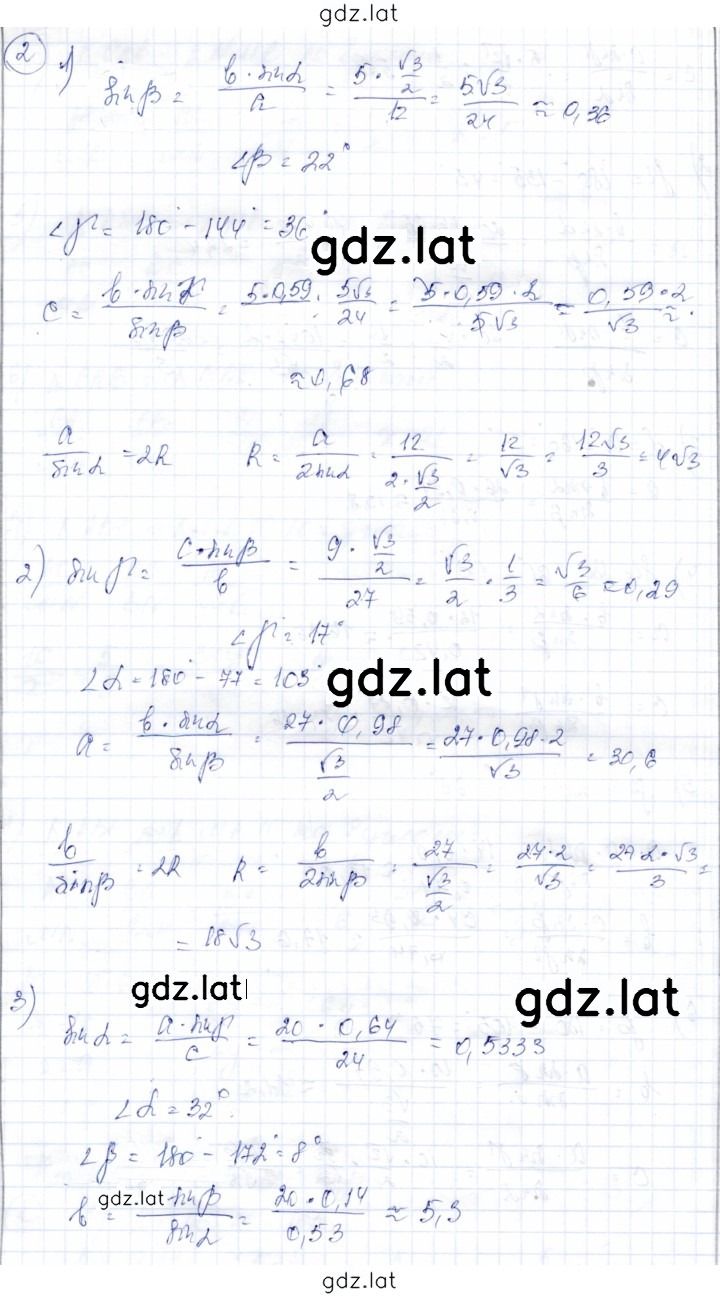 gdz.lat
2 1) sin β = b · sin α / a = 5 · √3/2 / 12 = 5√3/24 ≈ 0,36
∠β = 22°
∠γ = 180° - 144° = 36°
gdz.lat
c = b · sin γ / sin β = 5 · 0,59 : 5√3/24 = 5 · 0,59 · 2 / 5√3 = 0,59 · 2 / √3 ≈
≈ 0,68
a / sin α = 2R R = a / 2 sin α = 12 / 2 · √3/2 = 12/√3 = 12√3/3 = 4√3
2) sin γ = c · sin β / b = 9 · √3/2 / 27 = √3/2 · 1/3 = √3/6 ≈ 0,29
∠γ = 17°
∠α = 180° - 77° = 103°
gdz.lat
a = b · sin α / sin β = 27 · 0,98 / √3/2 = 27 · 0,98 · 2 / √3 = 30,6
b / sin β = 2R R = b / 2 sin β = 27 / √3/2 = 27 · 2 / √3 = 27 · 2 · √3 / 3 =
= 18√3
gdz.lat
gdz.lat
3) sin α = a · sin γ / c = 20 · 0,64 / 24 = 0,5333
∠α = 32°.
∠β = 180° - 172° = 8°
gdz.lat
b = sin β / sin α = 20 · 0,14 / 0,53 ≈ 5,3
gdz.lat